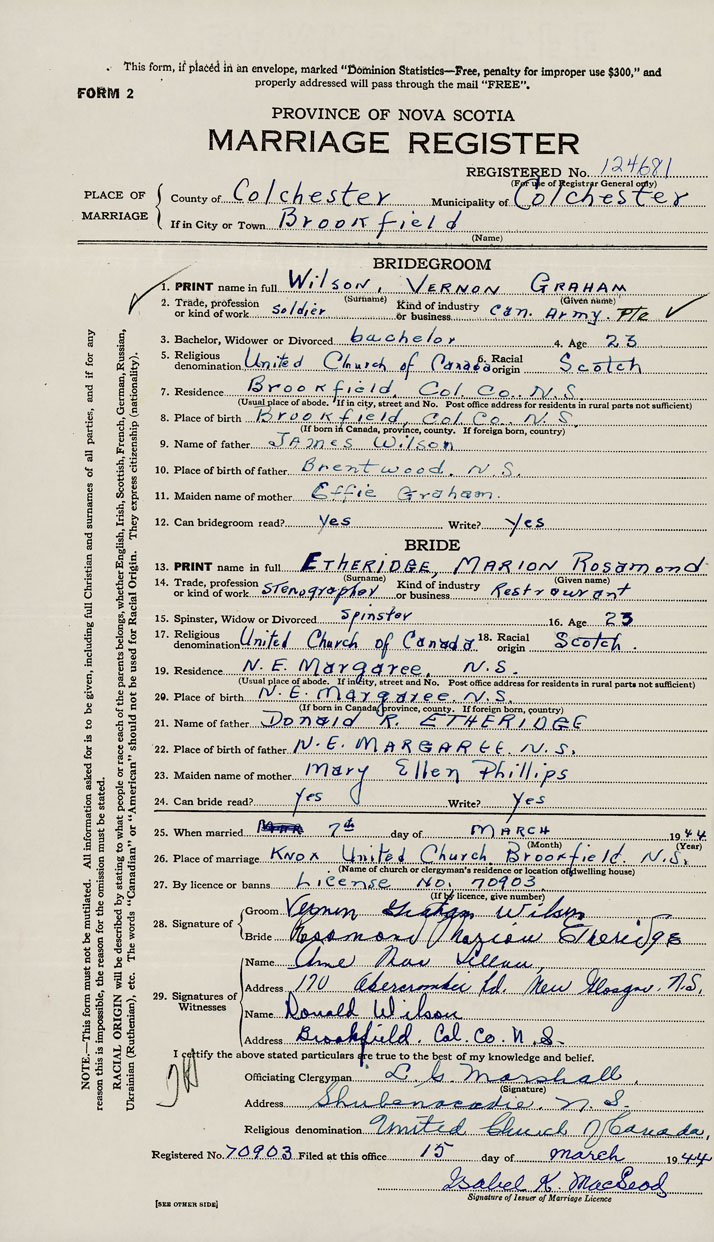 This form, if placed in an envelope, marked "Dominion Statistics—Free, penalty for improper use $300," and
properly addressed will pass through the mail "FREE".
FORM 2
PROVINCE OF NOVA SCOTIA
MARRIAGE REGISTER
REGISTERED No. 124681
(For use of Registrar General only)
PLACE OF MARRIAGE
County of Colchester Municipality of Colchester
If in City or Town Brookfield
(Name)
BRIDEGROOM
1. PRINT name in full Wilson, VERNON GRAHAM
(Surname) (Given name)
2. Trade, profession or kind of work Soldier Kind of industry or business Can. Army. Pte
3. Bachelor, Widower or Divorced bachelor 4. Age 23
5. Religious denomination United Church of Canada 6. Racial origin Scotch
7. Residence Brookfield, Col. Co., N.S.
(Usual place of abode. If in city, street and No. Post office address for residents in rural parts not sufficient)
8. Place of birth Brookfield, Col. Co. N.S.
(If born in Canada, province, county. If foreign born, country)
9. Name of father JAmes Wilson
10. Place of birth of father Brentwood. N.S.
11. Maiden name of mother Effie Graham.
12. Can bridegroom read? yes Write? yes
BRIDE
13. PRINT name in full ETHERIDGE, MARION Rosamond
(Surname) (Given name)
14. Trade, profession or kind of work Stenographer Kind of industry or business Restraurant
15. Spinster, Widow or Divorced Spinster 16. Age 23
17. Religious denomination United Church of Canada 18. Racial origin Scotch.
19. Residence N.E. Margaree, N.S.
(Usual place of abode. If in city, street and No. Post office address for residents in rural parts not sufficient)
20. Place of birth N.E. Margaree. N.S.
(If born in Canada, province, county. If foreign born, country)
21. Name of father Donald R. ETHERIDGE
22. Place of birth of father N.E. MARGAREE. N.S.
23. Maiden name of mother Mary Ellen Phillips
24. Can bride read? yes Write? yes
25. When married 7th day of MARCH 1944
(Month) (Year)
26. Place of marriage KNOX United Church, Brookfield. N.S.
(Name of church or clergyman's residence or location of dwelling house)
27. By licence or banns License No. 70903
(If by licence, give number)
28. Signature of
Groom Vernon Graham Wilson
Bride Rosamond Marion Etheridge
29. Signatures of Witnesses
Name
Address 170 Abercrombie Rd. New Glasgow. N.S.
Name Donald Wilson
Address Brookfield. Col. Co. N.S.
I certify the above stated particulars are true to the best of my knowledge and belief.
Officiating Clergyman L. G. Marshall,
(Signature)
Address Shubenacadie, N.S.
Religious denomination United Church Of Canada,
Registered No. 70903 Filed at this office 15 day of march 1944
Isabel K. MacLeod
Signature of Issuer of Marriage Licence
[SEE OTHER SIDE]
NOTE.—This form must not be mutilated. All information asked for is to be given, including full Christian and surnames of all parties, and if for any
reason this is impossible, the reason for the omission must be stated.
RACIAL ORIGIN will be described by stating to what people or race each of the parents belongs, whether English, Irish, Scottish, French, German, Russian,
Ukrainian (Ruthenian), etc. The words "Canadian" or "American" should not be used for Racial Origin. They express citizenship (nationality).